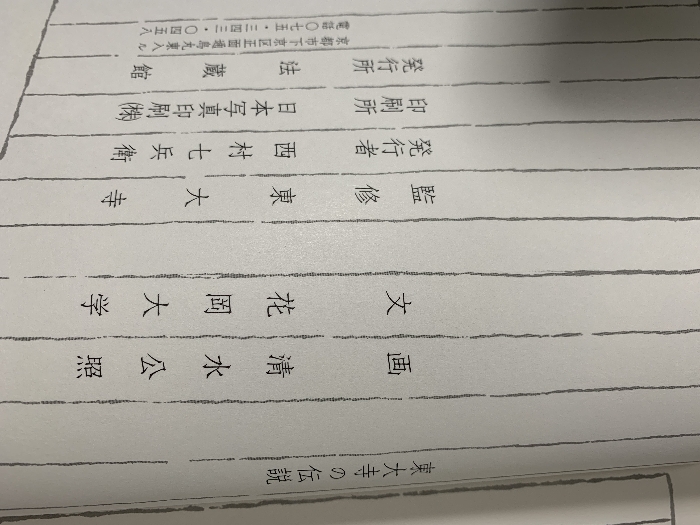 東大寺の伝説
画 清水公照
文 花岡大学
監修 東大寺
発行者 西村七兵衛
印刷所 日本写真印刷㈱
発行所 法蔵館
京都市下京区正面通烏丸東入ル
電話〇七五・三四三・〇四五八